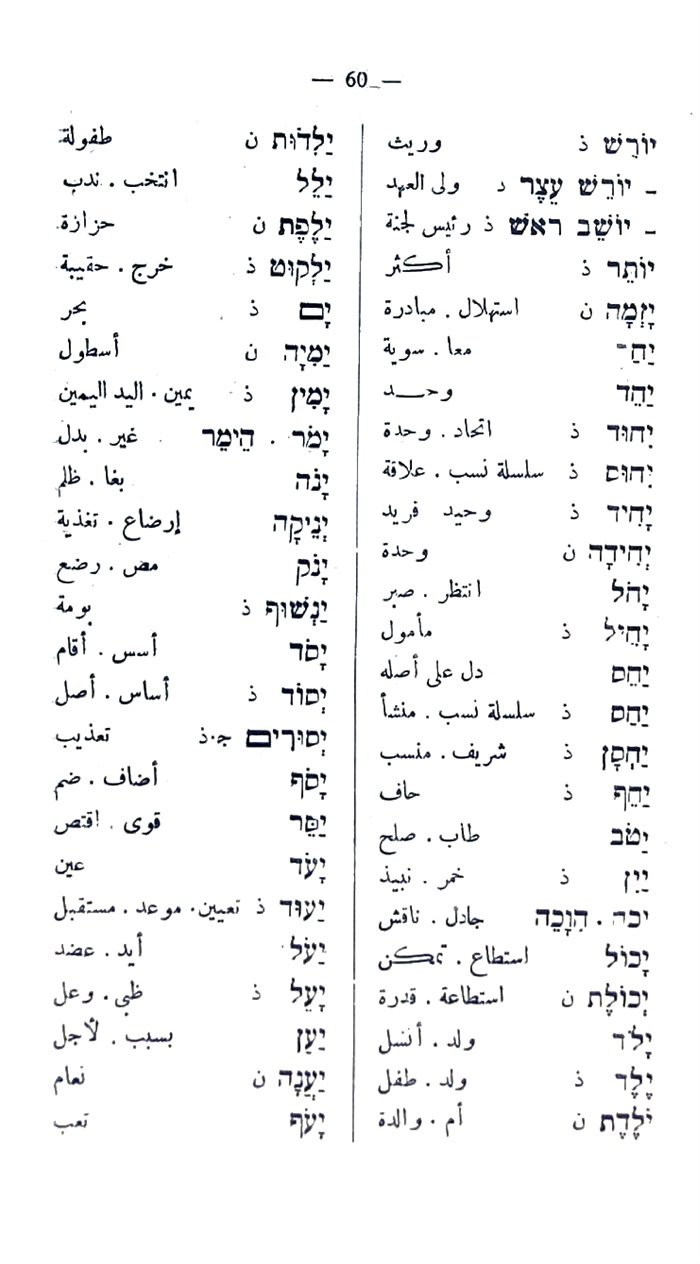 — 60 —
יוֹרֵשׁ ذ وريث
- יוֹרֵשׁ עֶצֶר ذ ولى العهد
- יוֹשֵׁב ראשׁ ذ رئيس لجنة
יוֹתֵר ذ أكثر
יָזְמָה ن استهلال . مبادرة
יַחַ־ معا . سوية
יַחֵד وحد
יִחוּד ذ اتحاد . وحدة
יִחוּס ذ سلسلة نسب . علاقة
יָחִיד ذ وحيد فريد
יְחִידָה ن وحدة
יָחֹל انتظر . صبر
יָחִיל ذ مأمول
יַחֵס دل على أصله
יַחַס ذ سلسلة نسب . منشأ
יַחְסָן ذ شريف . منسب
יַחֵף ذ حاف
יָטֹב طاب . صلح
יַיִן ذ خمر . نبيذ
יכח . הִוָכֵח جادل . ناقش
יָכוֹל استطاع . تمكن
יְכוֹלֶת ن استطاعة . قدرة
יָלֹד ولد . أنسل
יֶלֶד ذ ولد . طفل
יֹלֶדֶת ن أم . والدة
יַלְדוּת ن طفولة
יַלֵל انتخب . ندب
יַלֶפֶת ن حزازة
יַלְקוּט ذ خرج . حقيبة
יָם ذ بحر
יַמִיָה ن أسطول
יָמִין ذ يمين . اليد اليمين
יָמֹר . הֵימֵר غير . بدل
יָנֹה بغا . ظلم
יְנִיקָה إرضاع . تغذية
יָנֹק مص . رضع
יַנְשׁוּף ذ بومة
יָסֹד أسس . أقام
יְסוֹד ذ أساس . أصل
יְסוּרִים ج.ذ تعذيب
יָסֹף أضاف . ضم
יַסֵּר قوى . اقتص
יָעֹד عين
יַעוּד ذ تعيين . موعد . مستقبل
יַעֹל أيد . عضد
יָעֵל ذ ظبي . وعل
יַעַן بسبب . لأجل
יַעֲנָה ن نعام
יָעֹף تعب